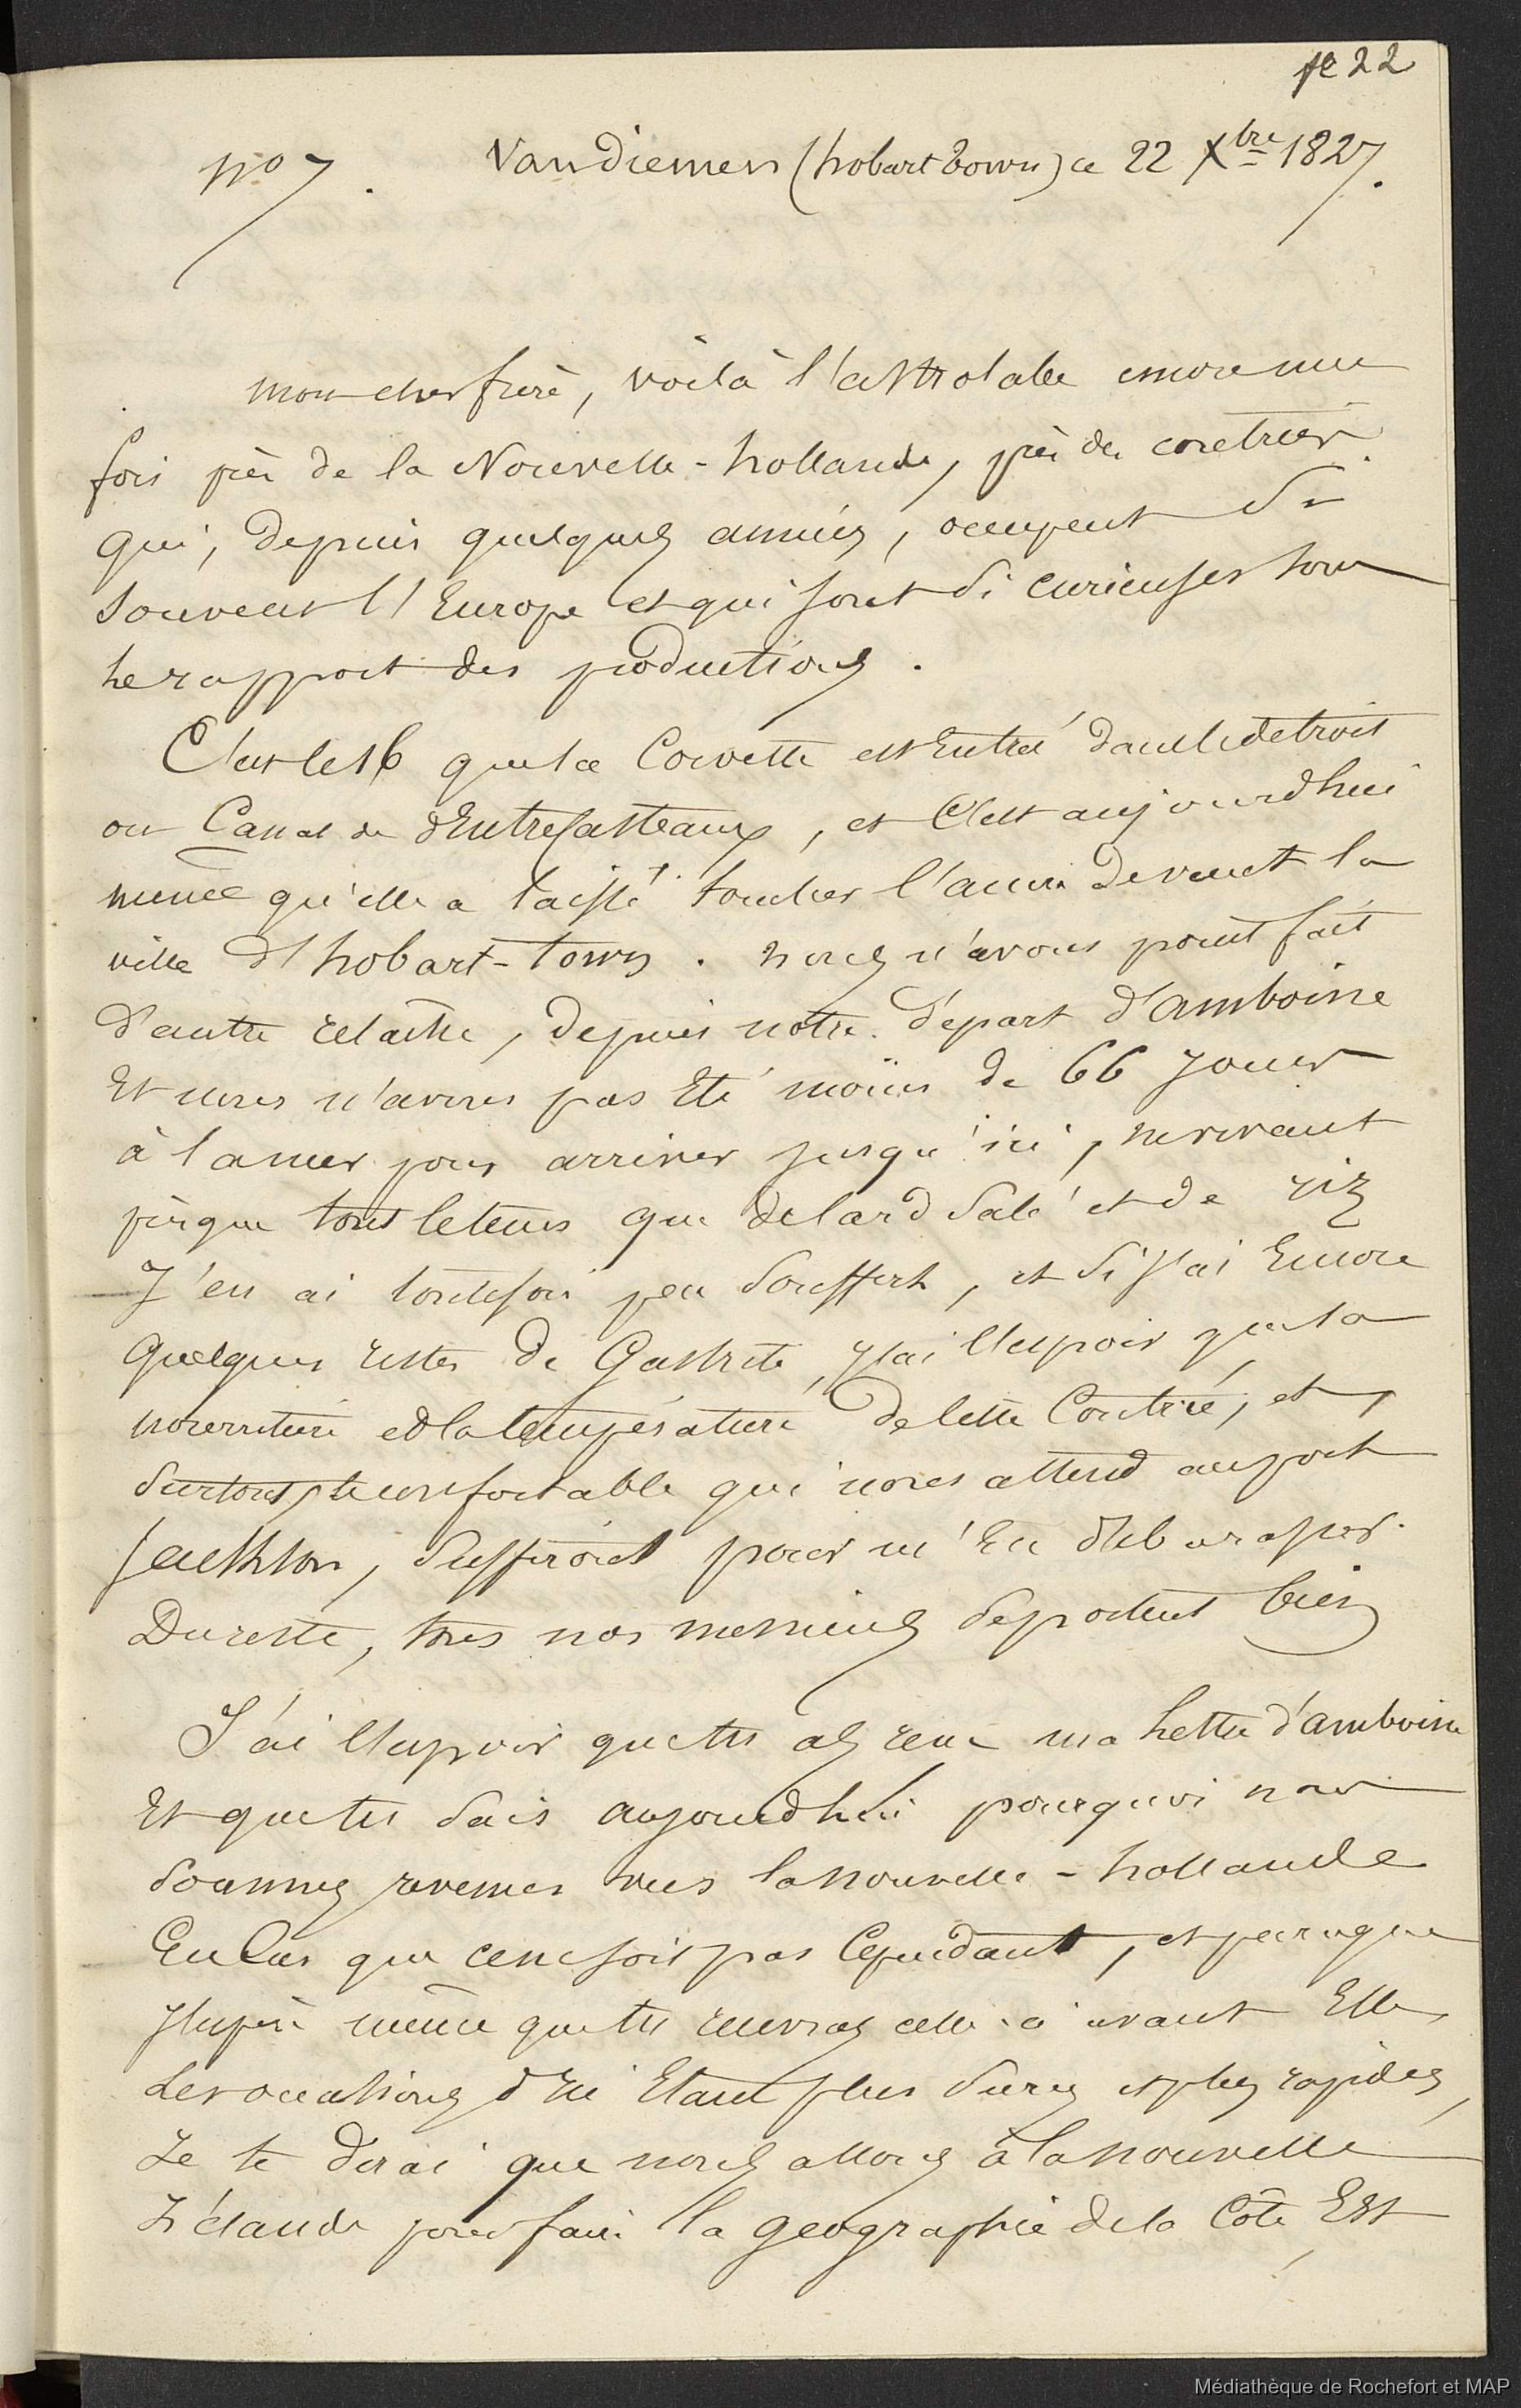 fe 22
No 7. Vandiemen (hobart Town) ce 22 Xbre 1827.
mon cher frère, voilà l'astrolabe encore une
fois près de la Nouvelle-hollande, près des contrées
qui, depuis quelques années, occupent si
souvent l'Europe et qui sont si curieuses sous
le rapport des productions.
C'est le 16 que la Corvette est Entrée dans le detroit
ou Canal de d'Entrecasteaux, et C'est aujourdhui
même qu'elle a laissé tomber l'ancre devant la
ville d'hobart-Town. nous n'avons point fait
d'autre relache, depuis notre départ d'amboine
Et nous n'avons pas Eté moins de 66 Jours
à la mer pour arriver jusqu'ici, ne vivant
presque tout le tems que de lard Salé et de riz
J'en ai toutefois peu Souffert, et Si j'ai Encore
Quelques restes de Gastrite, j'ai l'Espoir que la
nourriture et la température de cette Contrée, et,
Surtout, le confortable qui nous attend au port
Jackson, Suffiront pour m'En débarasser.
Du reste, tous nos messieurs se portent bien
J'ai l'Espoir que tu as reçu ma Lettre d'amboine
Et que tu Sais aujourdhui pourquoi nous
Sommes revenus vers la nouvelle-hollande
En Cas que ce ne soit pas Cependant, et parceque
J'Espère même que tu recevras celle-ci avant Elle,
Les occasions d'Ici Etant plus Sures et plus rapides,
Je te dirai que nous allons à la nouvelle
Zélande pour faire la géographie de la Côte Est
Médiathèque de Rochefort et MAP